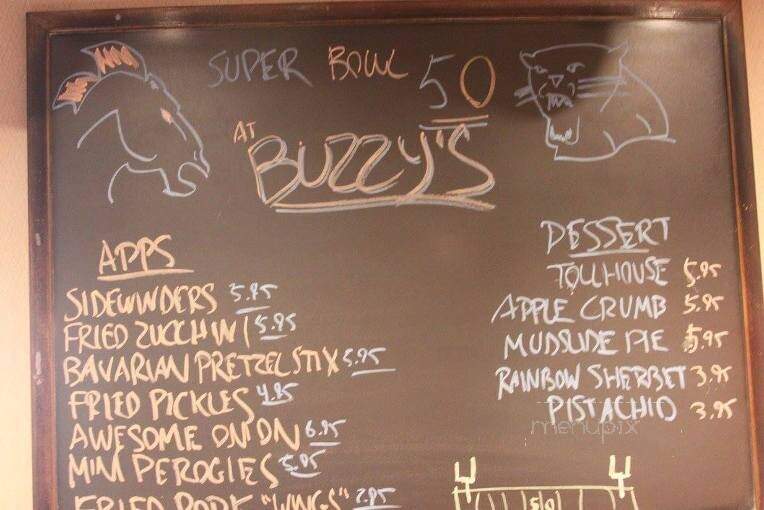 SUPER BOWL 50
AT
BUZZY'S
APPS
SIDEWINDERS 5.95
FRIED ZUCCHINI 5.95
BAVARIAN PRETZEL STIX 5.95
FRIED PICKLES 4.95
AWESOME ONION 6.95
MINI PEROGIES 5.95
FRIED PORK "WINGS" 7.95
DESSERT
TOLLHOUSE 5.95
APPLE CRUMB 5.95
MUDSLIDE PIE 5.95
RAINBOW SHERBET 3.95
PISTACHIO 3.95
menupix
50